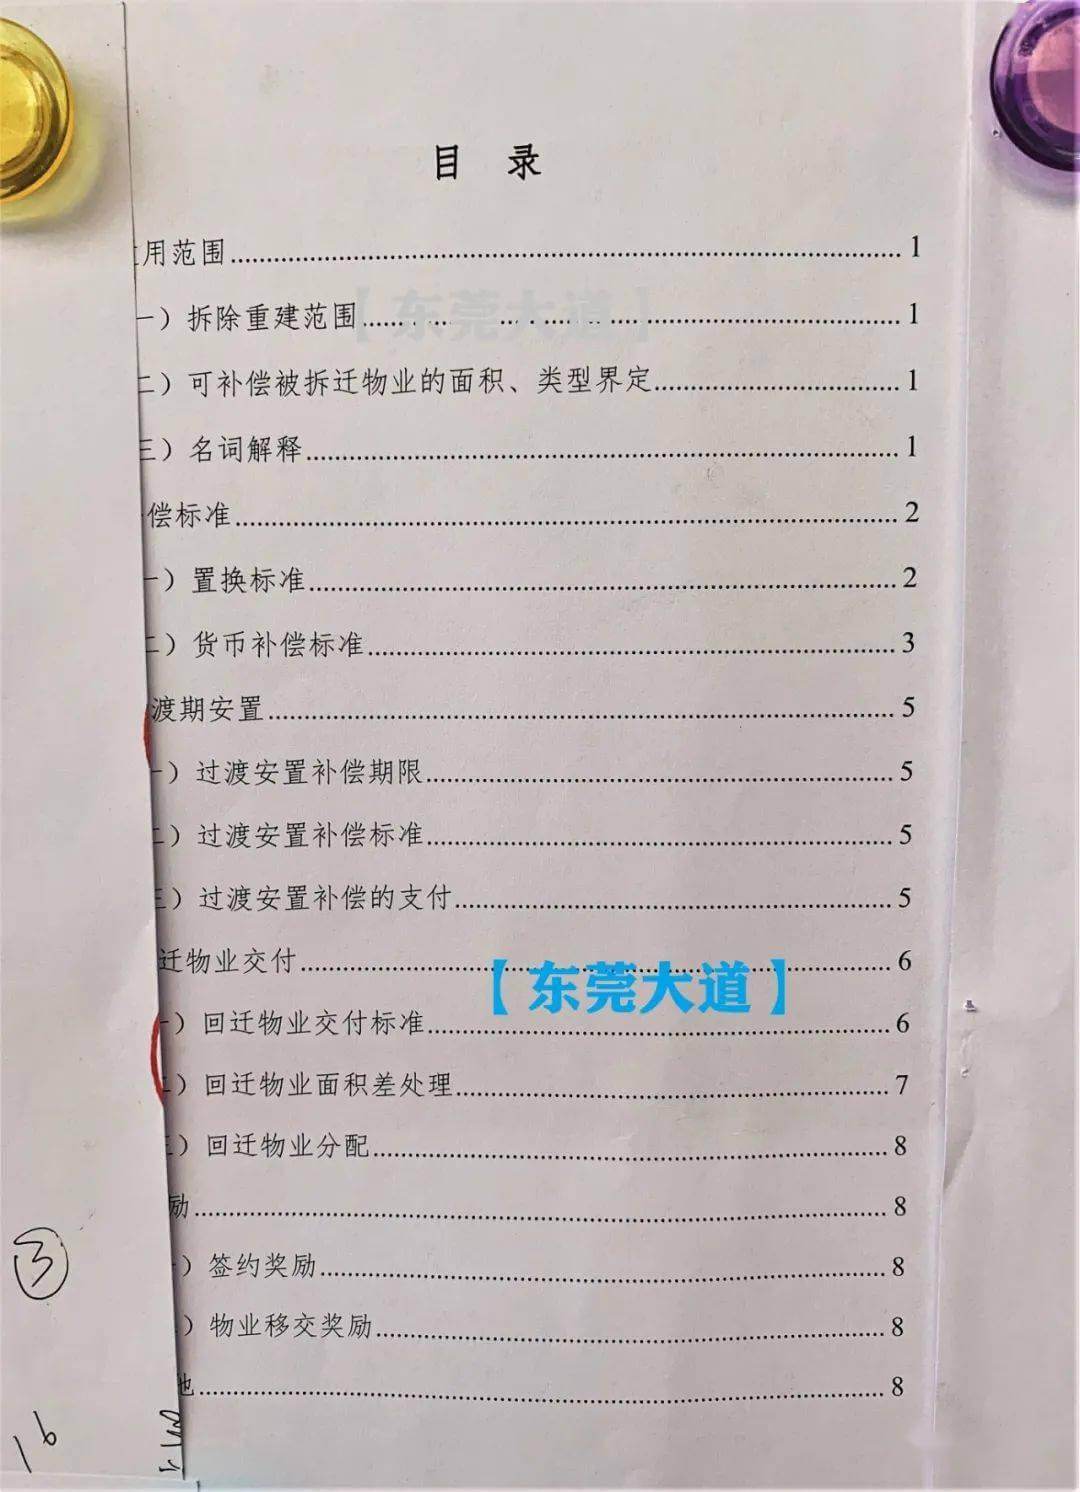 目 录
用范围 1
一）拆除重建范围 1
【东莞大道】
二）可补偿被拆迁物业的面积、类型界定 1
三）名词解释 1
偿标准 2
一）置换标准 2
二）货币补偿标准 3
渡期安置 5
一）过渡安置补偿期限 5
二）过渡安置补偿标准 5
三）过渡安置补偿的支付 5
迁物业交付 6
【东莞大道】
一）回迁物业交付标准 6
二）回迁物业面积差处理 7
三）回迁物业分配 8
励 8
）签约奖励 8
）物业移交奖励 8
他 8
③
16